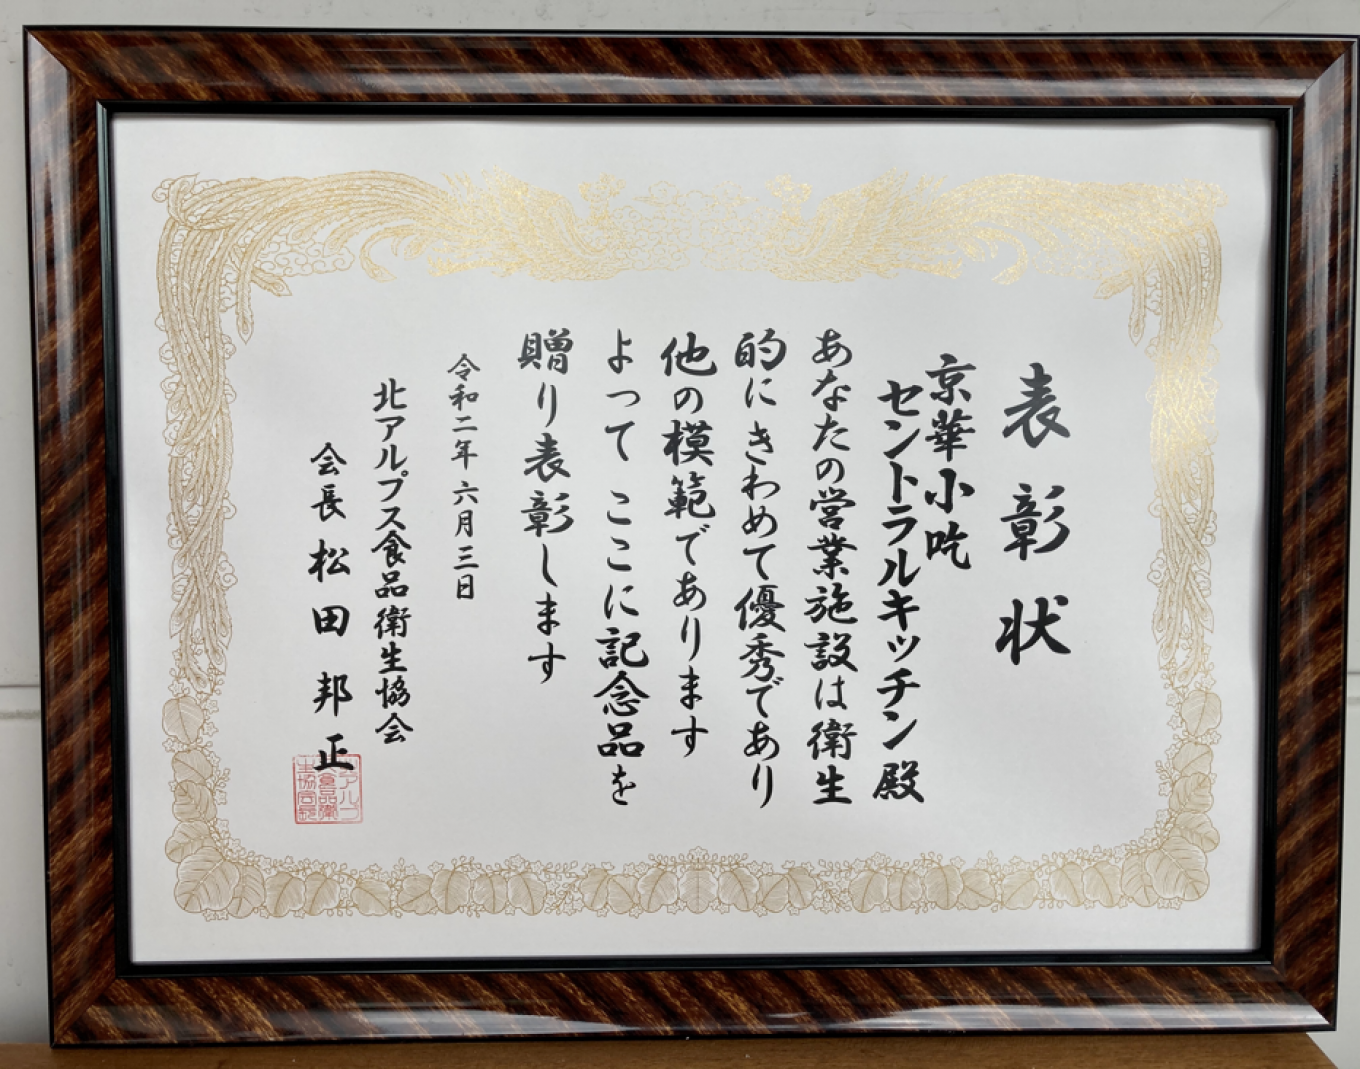 表彰状
京華小吃
セントラルキッチン殿
あなたの営業施設は衛生
的にきわめて優秀であり
他の模範であります
よってここに記念品を
贈り表彰します
令和二年六月三日
北アルプス食品衛生協会
会長松田邦正